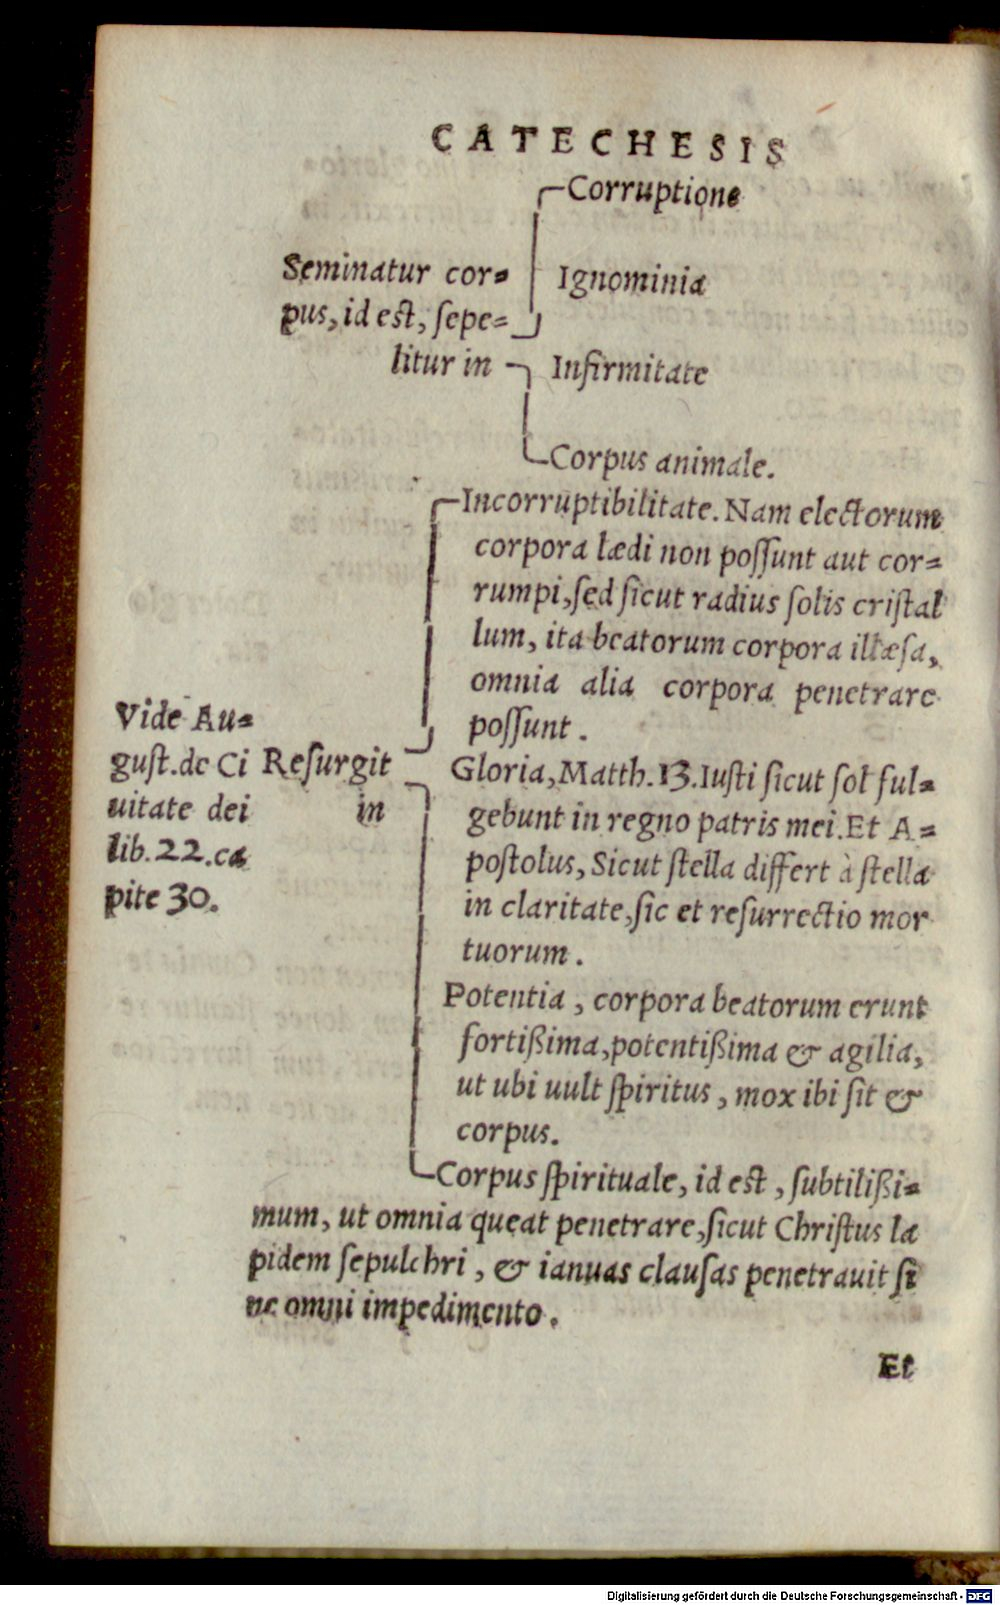 CATECHESIS
Corruptione
Seminatur cor=
pus, id est, sepe=
litur in
Ignominia
Infirmitate
Corpus animale.
Incorruptibilitate. Nam electorum
corpora lædi non possunt aut cor=
rumpi, sed sicut radius solis cristal
lum, ita beatorum corpora illæsa,
omnia alia corpora penetrare
possunt.
Vide Au=
gust. de Ci
uitate dei
lib. 22. ca
pite 30.
Resurgit
in
Gloria, Matth. 13. Iusti sicut sol ful=
gebunt in regno patris mei. Et A=
postolus, Sicut stella differt à stella
in claritate, sic et resurrectio mor
tuorum.
Potentia, corpora beatorum erunt
fortißima, potentißima & agilia,
ut ubi uult spiritus, mox ibi sit &
corpus.
Corpus spirituale, id est, subtilißi=
mum, ut omnia queat penetrare, sicut Christus la
pidem sepulchri, & ianuas clausas penetrauit si
ne omni impedimento.
Et
Digitalisierung gefördert durch die Deutsche Forschungsgemeinschaft - DFG